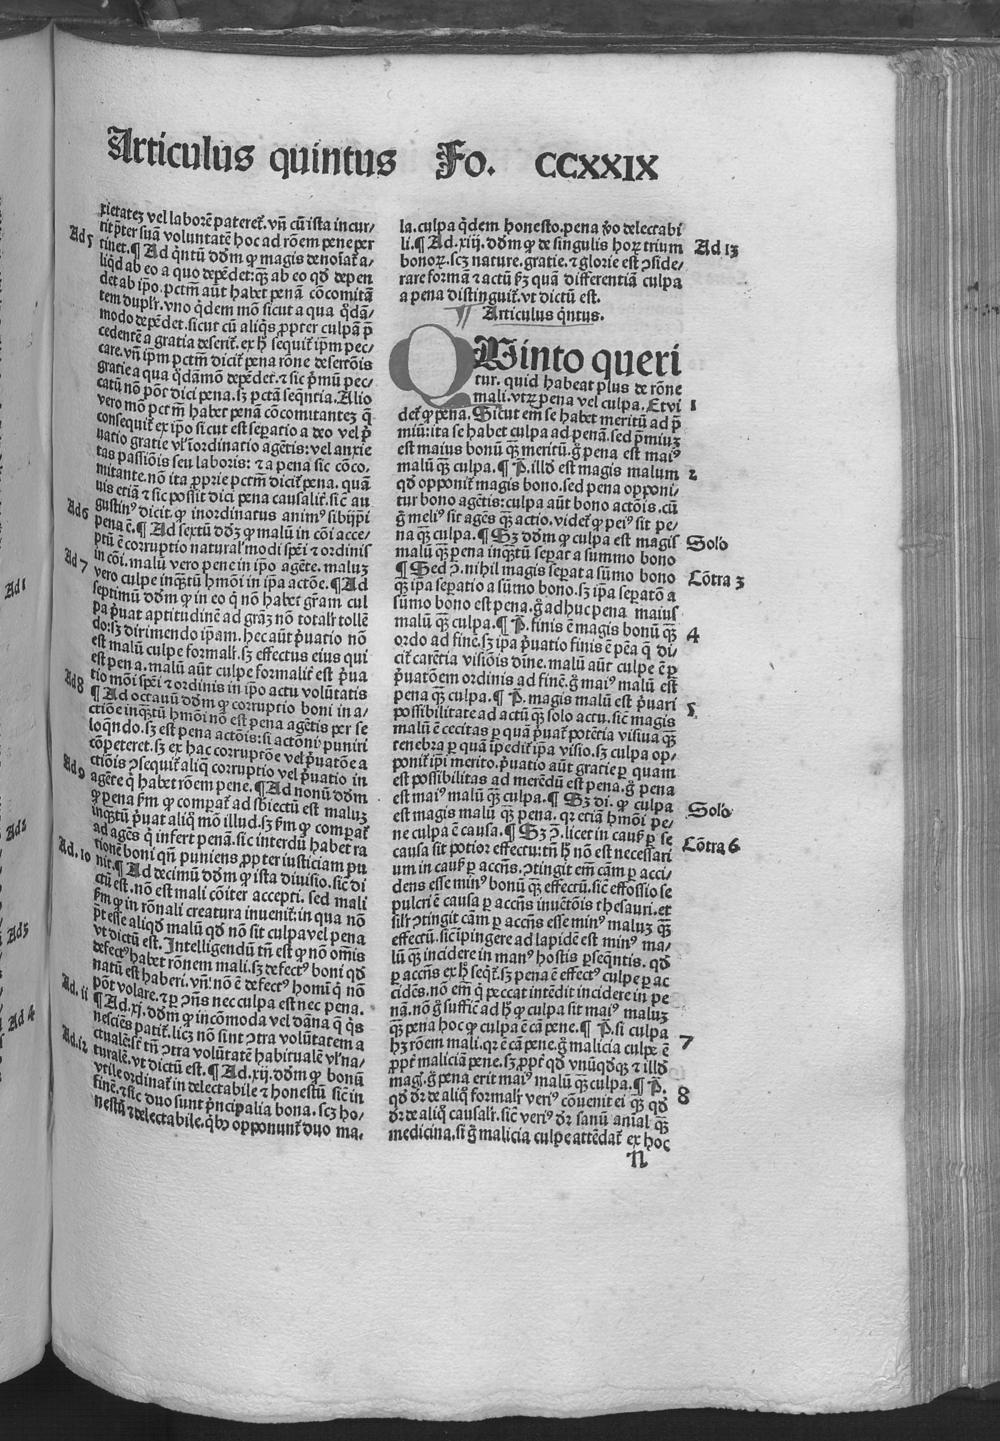 Articulus quintus Fo. CCXXIX
xietateꝫ vel laborē pateret᷑. vñ cū ista incur/
rit p̄ter suā voluntatē hoc ad rōem pene per
Ad 5
tinet. ¶ Ad q̄ntū dōm ꝙ magis denoīat᷑ a/
liqd ab eo a quo depēdet: qꝫ ab eo qd̄ depen
det ab ip̄o. pctm̄ aūt habet penā cōcomitā
tem duplr̄. vno q̄dem mō sicut a qua q̄dā/
modo depēdet. sicut cū aliq̄s ꝓpter culpā p̄
cedentē a gratia deserit᷑. ex h̄ sequit᷑ ip̄m pec/
care. vñ ip̄m pctm̄ dicit᷑ pena rōne desertōis
gratie a qua q̄dāmō depēdet. ⁊ sic p̄mū pec/
catū nō pōt dici pena. sꝫ pctā seq̄ntia. Alio
vero mō pctm̄ habet penā cōcomitanteꝫ q̄
consequit᷑ ex ip̄o sicut est sepatio a deo vel p̄
uatio gratie vl̓ iordinatio agētis: vel anxie
tas passiōis seu laboris: ⁊ a pena sic cōco/
mitante. nō ita ꝓprie pctm̄ dicit᷑ pena. quā
uis etiā ⁊ sic possit dici pena causalit᷑. sic̄ au
Ad 6
gustinꝰ dicit. ꝙ inordinatus animꝰ sibijpi
pena ē. ¶ Ad sextū dōꝫ ꝙ malū in cōi acce/
ptū ē corruptio natural̓ modi spēi ⁊ ordinis
Ad 7
in cōi. malū vero pene in ip̄o agēte. maluꝫ
vero culpe inqꝫtū hmōi in ip̄a actōe. ¶ Ad
septimū dōm ꝙ in eo q̄ nō habet gr̄am cul
pa p̄uat aptitudinē ad grāꝫ nō totalr̄ tollē
do: sꝫ dirimendo ip̄am. hec aūt p̄uatio nō
est malū culpe formalr̄. sꝫ effectus eius qui
est pena. malū aūt culpe formalit᷑ est p̄ua
Ad 8
tio mōi spēi ⁊ ordinis in ip̄o actu volūtatis
¶ Ad octauū dōm ꝙ corruptio boni in a/
ctiōe inqꝫtū hmōi nō est pena agētis per se
loqn̄do. sꝫ est pena actōis: si actōni puniri
cōpeteret. sꝫ ex hac corruptōe vel p̄uatōe a
ctiōis ꝯsequit᷑ aliq̄ corruptio vel p̄uatio in
Ad 9
agēte q̄ habet rōem pene. ¶ Ad nonū dōm
ꝙ pena ẜm ꝙ compat᷑ ad sbiectū est maluꝫ
inqꝫtū p̄uat aliq̄ mō illud. sꝫ ẜm ꝙ compat᷑
ad agēs q̄ infert penā. sic interdū habet ra
Ad. 10
tionē boni qn̄ puniens ꝓpter iusticiam pu
nit. ¶ Ad decimū dōm ꝙ ista diuisio. sic̄ di
ctū est. nō est mali cōiter accepti. sed mali
ẜm ꝙ in rōnali creatura inuenit᷑: in qua nō
p̄t esse aliqd̄ malū qd̄ nō sit culpa vel pena
vt dictū est. Intelligendū tn̄ est ꝙ nō om̄is
defectꝰ habet rōnem mali. sꝫ defectꝰ boni qd̄
natū est haberi. vñ: nō ē defectꝰ homī q̄ nō
pōt volare. ⁊ ꝑ ꝯn̄s nec culpa est nec pena.
Ad. 11
¶ Ad. xj. dōm ꝙ incōmoda vel dāna q̄ q̄s
nesciēs patit᷑. licꝫ nō sint ꝯtra volūtatem a
ctualē: sic̄ tn̄ ꝯtra volūtatē habitualē vl̓ na/
Ad. 12
turalē. vt dictū est. ¶ Ad. xij. dōm ꝙ bonū
vtile ordinat᷑ in delectabile ⁊ honestū sic̄ in
finē. ⁊ sic duo sunt p̄ncipalia bona. scꝫ ho/
nestū ⁊ delectabile. q̄bꝰ opponunt᷑ duo ma/
la. culpa q̄dem honesto. pena v̄o delectabi
li. ¶ Ad. xiij. dōm ꝙ de singulis horꝫ trium
Ad 13
bonoꝝ. scꝫ nature. gratie. ⁊ glorie est ꝯside/
rare formā ⁊ actū ẜꝫ quā differentiā culpa
a pena distinguit᷑. vt dictū est.
¶ Articulus q̄ntus.
QUinto queri
tur. quid habeat plus de rōne
mali. vtꝝ pena vel culpa. Et vi
1
det᷑ ꝙ pena. Sicut em̄ se habet meritū ad p̄
miū: ita se habet culpa ad penā. sed p̄miuꝫ
est maius bonū qꝫ meritū. g̊ pena est maiꝰ
malū qꝫ culpa. ¶ P̄. illd̄ est magis malum
2
qd̄ opponit᷑ magis bono. sed pena opponi/
tur bono agētis: culpa aūt bono actōis. cū
g̊ meliꝰ sit agēs qꝫ actio. videt᷑ ꝙ peiꝰ sit pe/
na qꝫ culpa. ¶ Sꝫ dōm ꝙ culpa est magis
Solo
malū qꝫ pena inqꝫtū sepat a summo bono
¶ Sed ꝯ. nihil magis sepat a sūmo bono
Cōtra 3
qꝫ ip̄a sepatio a sūmo bono. sꝫ ip̄a sepatō a
sūmo bono est pena. g̊ adhuc pena maius
malū qꝫ culpa. ¶ P̄. finis ē magis bonū qꝫ
4
ordo ad finē. sꝫ ip̄a p̄uatio finis ē pēa q̄ di/
cit᷑ carētia visiōis dīne. malū aūt culpe ē ꝑ
p̄uatōem ordinis ad finē. g̊ maiꝰ malū est
pena qꝫ culpa. ¶ P̄. magis malū est p̄uari
5
possibilitate ad actū qꝫ solo actu. sic̄ magis
malū ē cecitas ꝑ quā p̄uat᷑ potētia visiua qꝫ
tenebra ꝑ quā īpedit᷑ ip̄a visio. sꝫ culpa op/
ponit᷑ ip̄i merito. p̄uatio aūt gratie ꝑ quam
est possibilitas ad merēdū est pena. g̊ pena
est maiꝰ malū qꝫ culpa. ¶ Sꝫ di. ꝙ culpa
Solo
est magis malū qꝫ pena. qꝛ etiā hmōi pe/
ne culpa ē causa. ¶ Sꝫ ꝯ. licet in causꝭ ꝑ se
Cōtra 6
causa sit potior effectu: tn̄ h̄ nō est necessari
um in causꝭ ꝑ accn̄s. ꝯtingit em̄ cām ꝑ acci/
dens esse minꝰ bonū qꝫ effectū. sic̄ effossio se
pulcri ē causa ꝑ accn̄s inuētōis thesauri. et
silr̄ ꝯtingit cām ꝑ accn̄s esse minꝰ maluꝫ qꝫ
effectū. sic̄ īpingere ad lapidē est minꝰ ma/
lū qꝫ incidere in manꝰ hostis ꝑseqn̄tis. qd̄
ꝑ accn̄s ex h̄ seqt᷑. sꝫ pena ē effectꝰ culpe ꝑ ac
cidēs. nō em̄ q̄ peccat intēdit incidere in pe
nā. nō g̊ suffic̄ ad h̄ ꝙ culpa sit maiꝰ maluꝫ
qꝫ pena hoc ꝙ culpa ē cā pene. ¶ P̄. si culpa
7
hꝫ rōem mali. qꝛ ē cā pene. g̊ malicia culpe ē
ꝓpt᷑ maliciā pene. sꝫ ꝓpt᷑ qd̄ vnūqd̄qꝫ ⁊ illd̄
mag̓. g̊ pena erit maiꝰ malū qꝫ culpa. ¶ P̄.
8
qd̄ dr̄ de aliq̊ formalr̄ veriꝰ cōuenit ei qꝫ qd̄
dr̄ de aliq̊ causalr̄. sic̄ veriꝰ dr̄ sanū anial qꝫ
medicina. si g̊ malicia culpe attēdat᷑ ex hoc
N
Ad 1
Ad 2
Ad 3
Ad 4